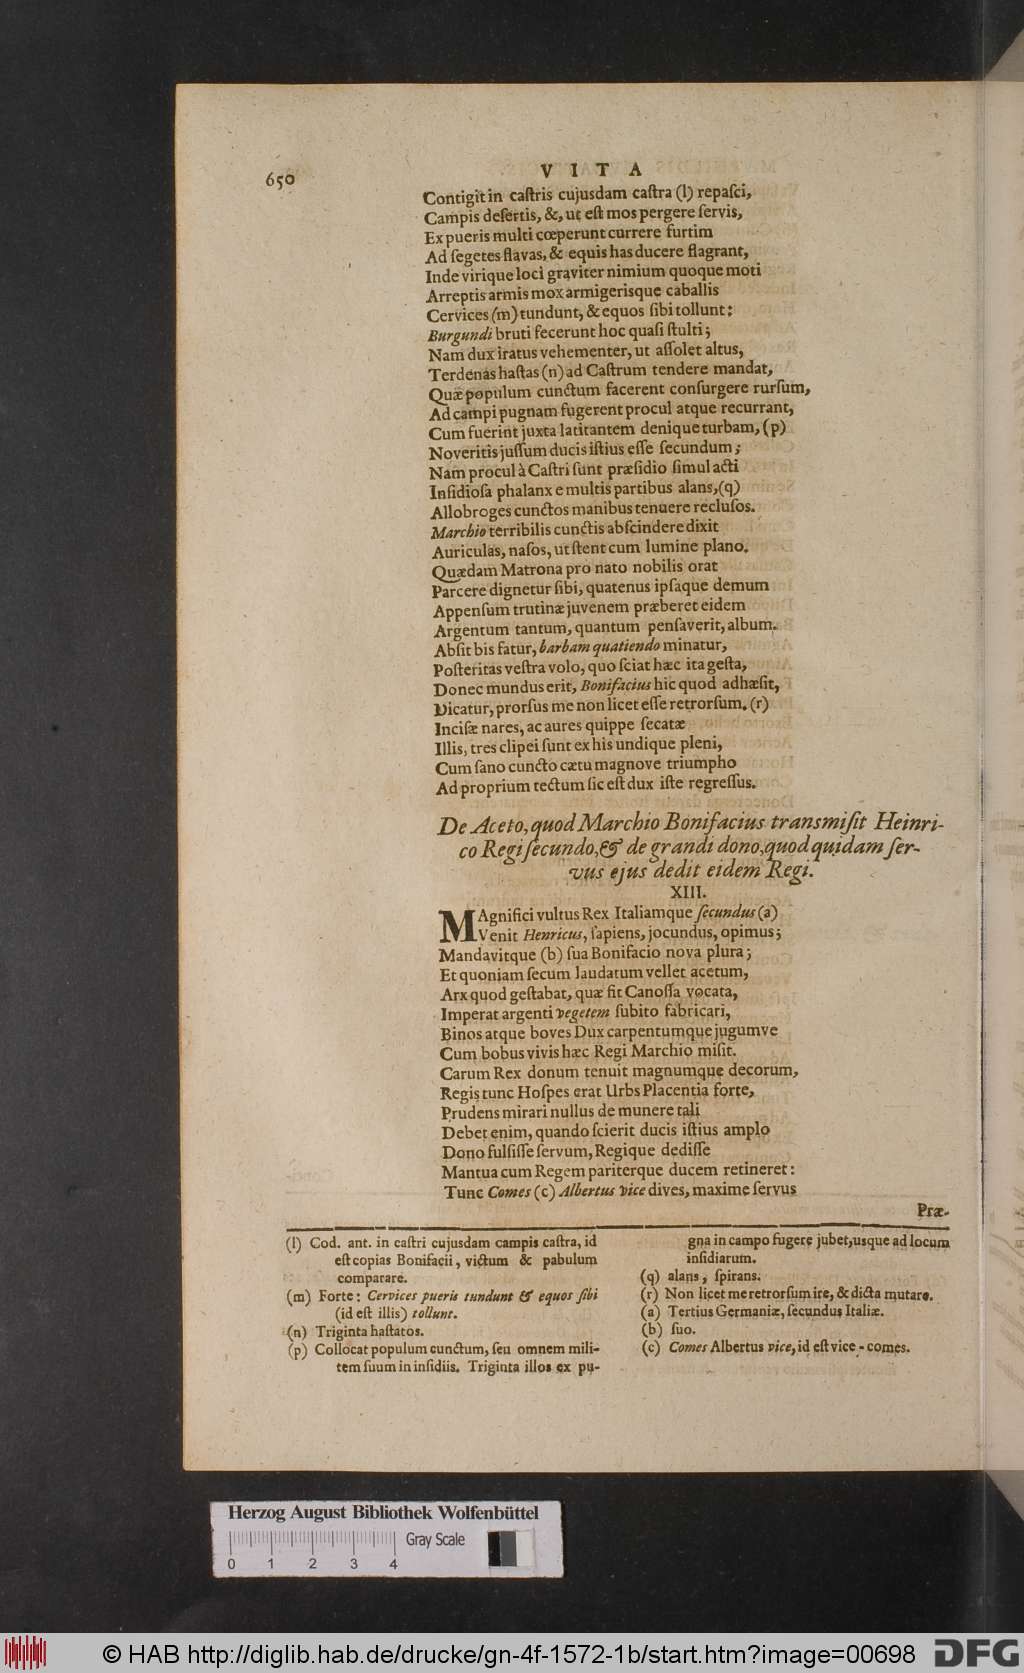 650
VITA
Contigit in caſtris cujusdam caſtra (l) repaſci,
Campis deſertis, &, ut eſt mos pergere ſervis,
Ex pueris multi cœperunt currere furtim
Ad ſegetes flavas, & equis has ducere flagrant,
Inde virique loci graviter nimium quoque moti
Arreptis armis mox armigerisque caballis
Cervices (m) tundunt, & equos ſibi tollunt:
Burgundi bruti fecerunt hoc quaſi ſtulti;
Nam dux iratus vehementer, ut aſſolet altus,
Terdenas haſtas (n) ad Caſtrum tendere mandat,
Quæ populum cunctum facerent conſurgere rurſum,
Ad campi pugnam fugerent procul atque recurrant,
Cum fuerint juxta latitantem denique turbam, (p)
Noveritis juſſum ducis iſtius eſſe ſecundum;
Nam procul à Caſtri ſunt præſidio ſimul acti
Inſidioſa phalanx e multis partibus alans, (q)
Allobroges cunctos manibus tenuere recluſos.
Marchio terribilis cunctis abſcindere dixit
Auriculas, naſos, ut ſtent cum lumine plano.
Quædam Matrona pro nato nobilis orat
Parcere dignetur ſibi, quatenus ipſaque demum
Appenſum trutinæ juvenem præberet eidem
Argentum tantum, quantum penſaverit, album.
Abſit bis fatur, barbam quatiendo minatur,
Poſteritas veſtra volo, quo ſciat hæc ita geſta,
Donec mundus erit, Bonifacius hic quod adhæſit,
Dicatur, prorſus me non licet eſſe retrorſum. (r)
Inciſæ nares, ac aures quippe ſecatæ
Illis, tres clipei ſunt ex his undique pleni,
Cum ſano cuncto cætu magnove triumpho
Ad proprium tectum ſic eſt dux iſte regreſſus.
De Aceto, quod Marchio Bonifacius transmiſit Heinri-
co Regi ſecundo, & de grandi dono, quod quidam ſer-
vus ejus dedit eidem Regi.
XIII.
MAgnifici vultus Rex Italiamque ſecundus (a)
Venit Henricus, ſapiens, jocundus, opimus;
Mandavitque (b) ſua Bonifacio nova plura;
Et quoniam ſecum laudatum vellet acetum,
Arx quod geſtabat, quæ fit Canoſſa vocata,
Imperat argenti vegetem ſubito fabricari,
Binos atque boves Dux carpentumque jugumve
Cum bobus vivis hæc Regi Marchio miſit.
Carum Rex donum tenuit magnumque decorum,
Regis tunc Hoſpes erat Urbs Placentia forte,
Prudens mirari nullus de munere tali
Debet enim, quando ſcierit ducis iſtius amplo
Dono fulſiſſe ſervum, Regique dediſſe
Mantua cum Regem pariterque ducem retineret:
Tunc Comes (c) Albertus vice dives, maxime ſervus
Præ-
(l) Cod. ant. in caſtri cujusdam campis caſtra, id
eſt copias Bonifacii, victum & pabulum
comparare.
(m) Forte: Cervices pueris tundunt & equos ſibi
(id eſt illis) tollunt.
(n) Triginta haſtatos.
(p) Collocat populum cunctum, ſeu omnem mili-
tem ſuum in inſidiis. Triginta illos ex pu-
gna in campo fugere jubet, usque ad locum
inſidiarum.
(q) alans, ſpirans.
(r) Non licet me retrorſum ire, & dicta mutare.
(a) Tertius Germaniæ, ſecundus Italiæ.
(b) ſuo.
(c) Comes Albertus vice, id eſt vice-comes.
Herzog August Bibliothek Wolfenbüttel
Gray Scale
0 1 2 3 4
© HAB http://diglib.hab.de/drucke/gn-4f-1572-1b/start.htm?image=00698
DFG